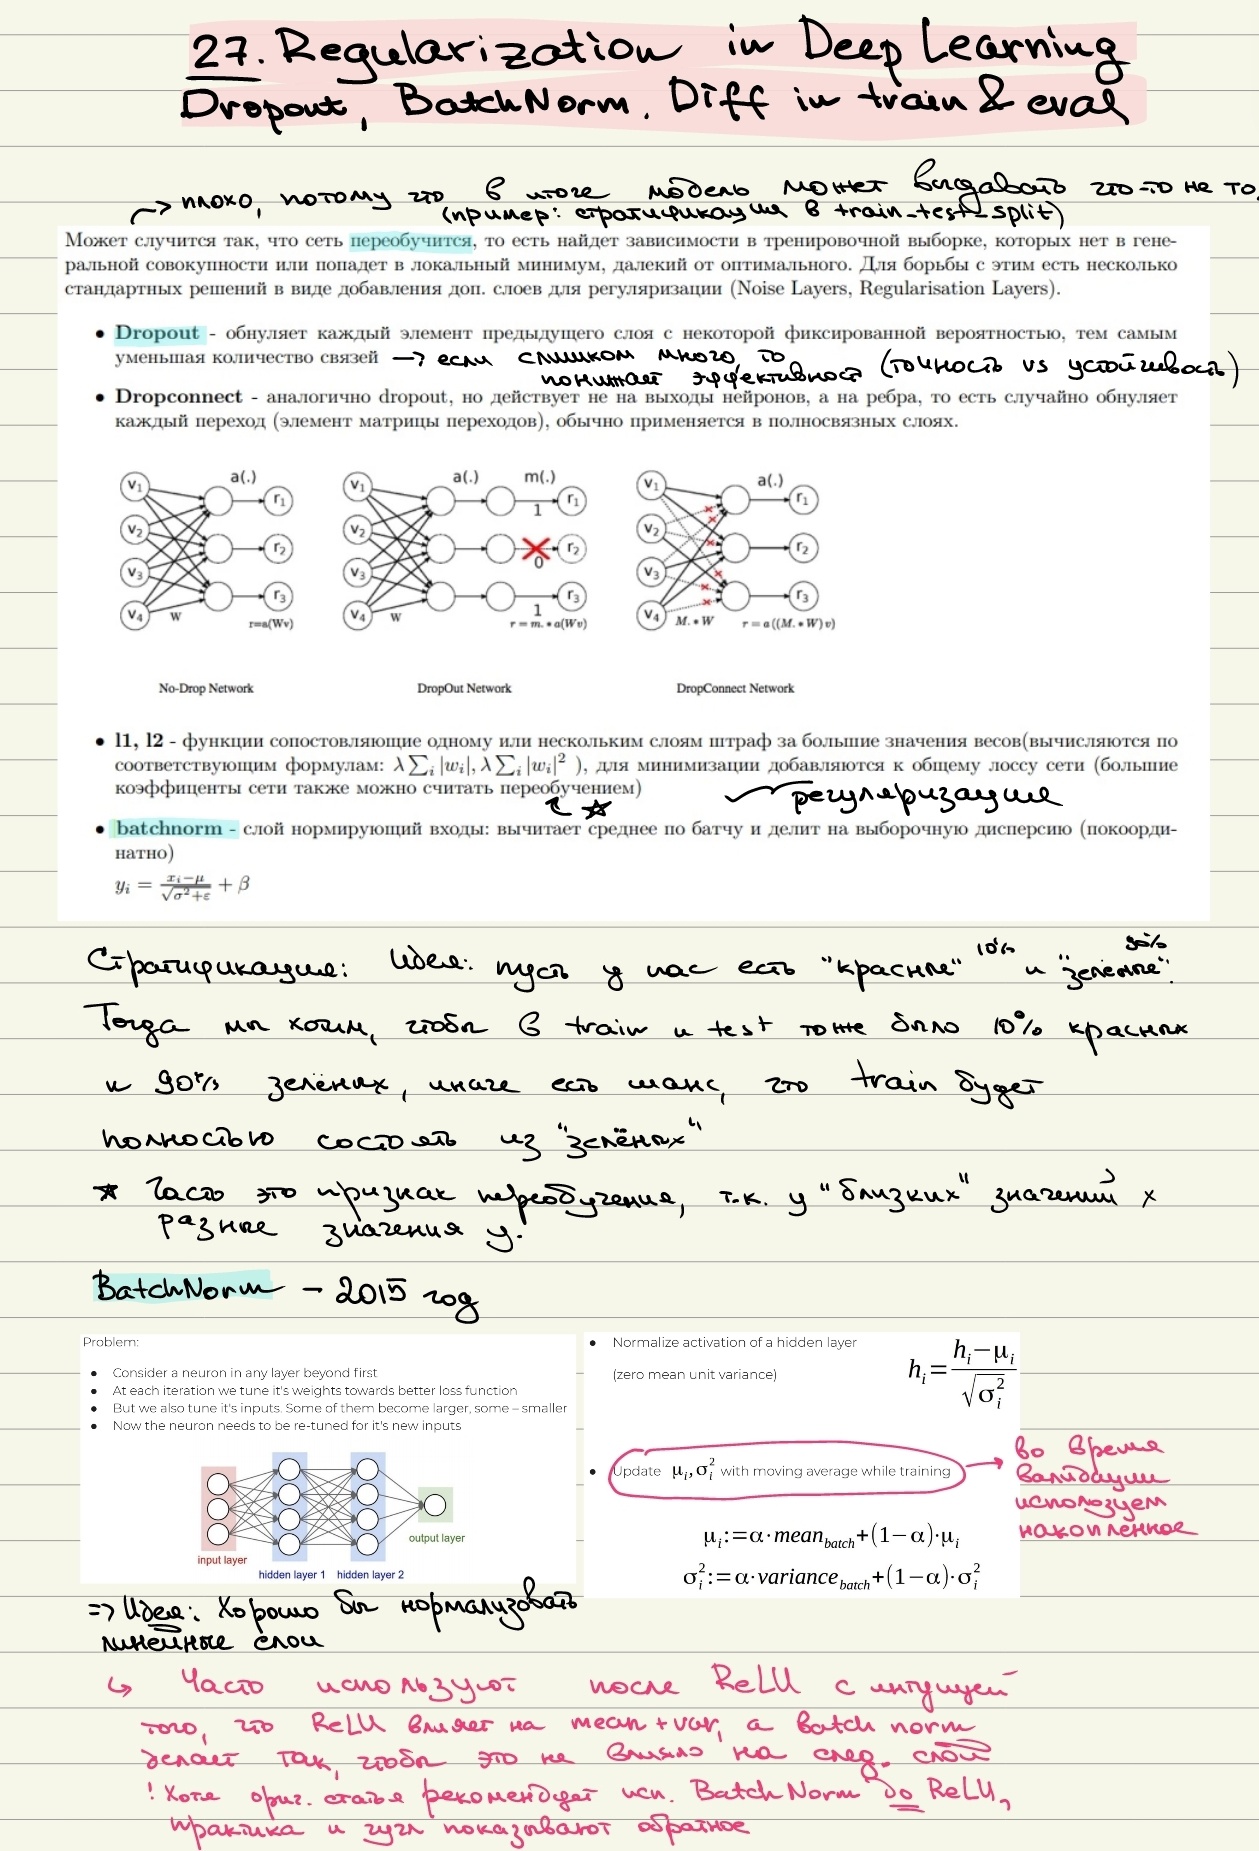 27. Regularization in Deep Learning
Dropout, BatchNorm. Diff in train & eval
→ плохо, потому что в итоге модель может выдавать что-то не то
(пример: стратификация в train_test_split)
Может случится так, что сеть переобучится, то есть найдет зависимости в тренировочной выборке, которых нет в гене-
ральной совокупности или попадет в локальный минимум, далекий от оптимального. Для борьбы с этим есть несколько
стандартных решений в виде добавления доп. слоев для регуляризации (Noise Layers, Regularisation Layers).
• Dropout - обнуляет каждый элемент предыдущего слоя с некоторой фиксированной вероятностью, тем самым
уменьшая количество связей → если слишком много, то
понижает эффективность (точность vs устойчивость)
• Dropconnect - аналогично dropout, но действует не на выходы нейронов, а на ребра, то есть случайно обнуляет
каждый переход (элемент матрицы переходов), обычно применяется в полносвязных слоях.
v₁ v₂ v₃ v₄ W a(.) r₁ r₂ r₃ r=a(Wv)
No-Drop Network
v₁ v₂ v₃ v₄ W a(.) m(.) 1 0 1 r₁ r₂ r₃ r = m. * a(Wv)
DropOut Network
v₁ v₂ v₃ v₄ M. * W a(.) r₁ r₂ r₃ r = a((M. * W)v)
DropConnect Network
• l1, l2 - функции сопостовляющие одному или нескольким слоям штраф за большие значения весов(вычисляются по
соответствующим формулам: λ∑ᵢ|wᵢ|, λ∑ᵢ|wᵢ|² ), для минимизации добавляются к общему лоссу сети (большие
коэффиценты сети также можно считать переобучением)
★ регуляризация
• batchnorm - слой нормирующий входы: вычитает среднее по батчу и делит на выборочную дисперсию (покоорди-
натно)
yᵢ = (xᵢ−μ)/√(σ²+ε) + β
Стратификация: Идея: пусть у нас есть "красные" 10% и "зелёные" 90%.
Тогда мы хотим, чтобы в train и test тоже было 10% красных
и 90% зелёных, иначе есть шанс, что train будет
полностью состоять из "зелёных"
★ Часто это признак переобучения, т.к. у "близких" значений x
разные значения y.
BatchNorm – 2015 год
Problem:
• Consider a neuron in any layer beyond first
• At each iteration we tune it's weights towards better loss function
• But we also tune it's inputs. Some of them become larger, some – smaller
• Now the neuron needs to be re-tuned for it's new inputs
input layer
hidden layer 1 hidden layer 2
output layer
• Normalize activation of a hidden layer
(zero mean unit variance)
hᵢ = (hᵢ−μᵢ)/√(σᵢ²)
• Update μᵢ,σᵢ² with moving average while training
→ во время
валидации
используем
накопленное
μᵢ:=α·mean_batch+(1−α)·μᵢ
σᵢ²:=α·variance_batch+(1−α)·σᵢ²
=> Идея: Хорошо бы нормализовать
линейные слои
↳ Часто используют после ReLU с интуицией
того, что ReLU влияет на mean + var, а batch norm
делает так, чтобы это не влияло на след. слой
! Хотя ориг. статья рекомендует исп. BatchNorm до ReLU,
практика и гугл показывают обратное